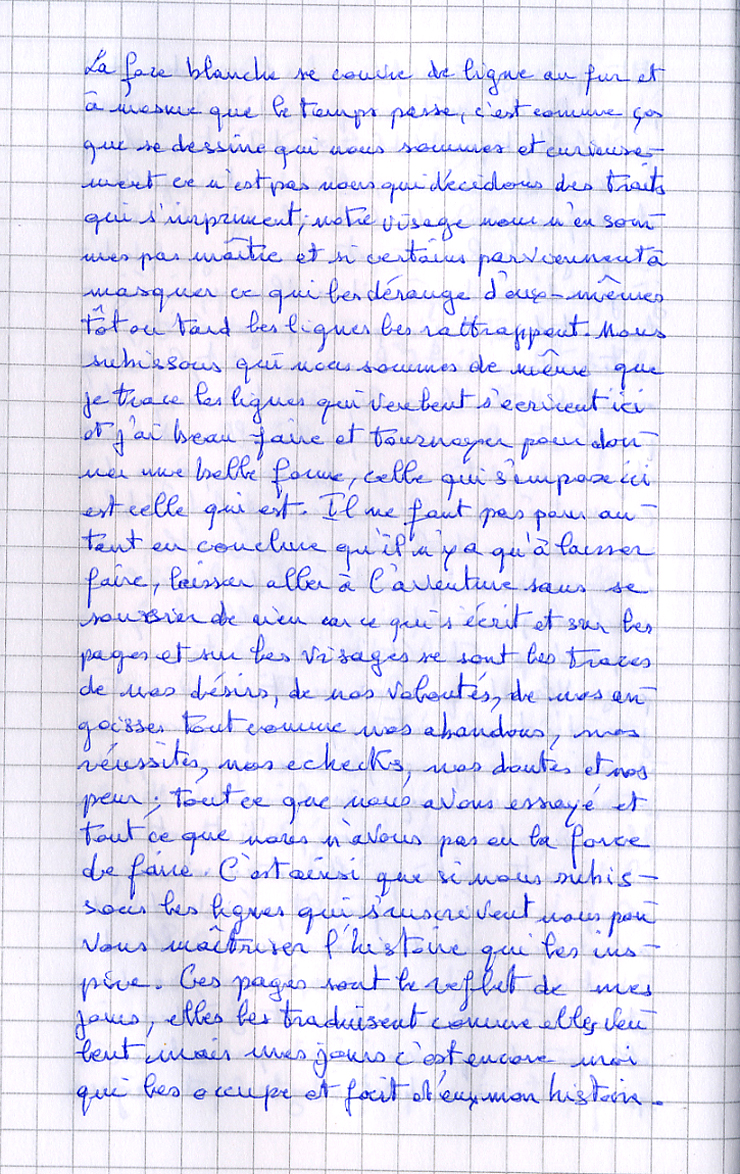 La face blanche se couvre de ligne au fur et
à mesure que le temps passe, c'est comme ças
que se dessine qui nous sommes et curieuse-
ment ce n'est pas nous qui décidons des traits
qui s'impriment; notre visage nous n'en som-
mes pas maître et si certains parviennent à
masquer ce qui les dérange d'eux-mêmes
tôt ou tard les lignes les rattrappent. Nous
subissons qui nous sommes de même que
je trace les lignes qui veulent s'écrirent ici
et j'ai beau faire et tournoyer pour don-
ner une belle forme, celle qui s'impose ici
est celle qui est. Il ne faut pas pour au-
tant en conclure qu'il n'y a qu'à laisser
faire, laisser aller à l'aventure sans se
soucier de rien car ce qui s'écrit et sur les
pages et sur les visages se sont les traces
de nos désirs, de nos volontés, de nos an-
goisses tout comme nos abandons, nos
réussites, nos echecks, nos doutes et nos
peur; tout ce que nous avons essayé et
tout ce que nous n'avons pas eu la force
de faire. C'est ainsi que si nous subis-
sons les lignes qui s'inscrivent nous pou-
vons maîtriser l'histoire qui les ins-
pire. Ces pages sont le reflet de mes
jours, elles les traduisent comme elles veu-
lent mais mes jours c'est encore moi
qui les occupe et fait d'eux mon histoire.